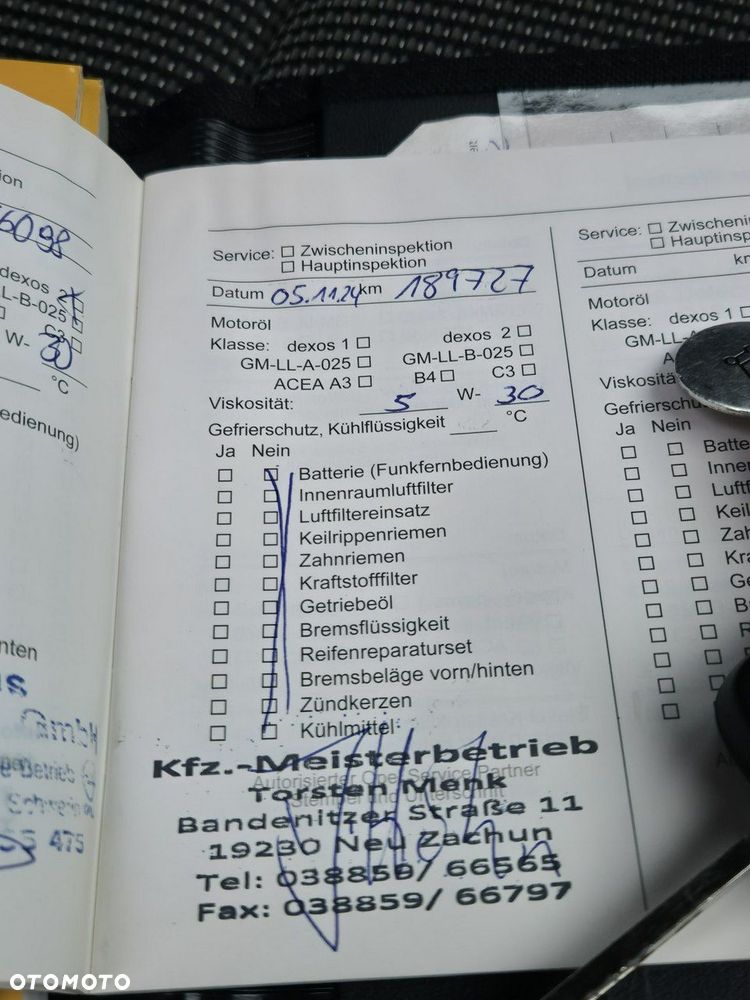 ion
6098
dexos 2
LL-B-025
C3
W- 30
°C
edienung)
nten
GmbH
e-Betrieb
475
Service: Zwischeninspektion
Hauptinspektion
Datum 05.11.24 km 189727
Motoröl
Klasse: dexos 1 dexos 2
GM-LL-A-025 GM-LL-B-025
ACEA A3 B4 C3
Viskosität: 5 W- 30
Gefrierschutz, Kühlflüssigkeit °C
Ja Nein
Batterie (Funkfernbedienung)
Innenraumluftfilter
Luftfiltereinsatz
Keilrippenriemen
Zahnriemen
Kraftstofffilter
Getriebeöl
Bremsflüssigkeit
Reifenreparaturset
Bremsbeläge vorn/hinten
Zündkerzen
Kühlmittel
Kfz.-Meisterbetrieb
Autorisierter Opel Service Partner
Torsten Menk
Stempel und Unterschrift
Bandenitzer Straße 11
19230 Neu Zachun
Tel: 038859/ 66565
Fax: 038859/ 66797
Service: Zwischenins
Hauptinsp
Datum km
Motoröl
Klasse: dexos 1
GM-LL-A
Viskositä
Gefrierschut
Ja Nein
Batte
Inne
Luftf
Keil
Zah
Kra
Ge
B
R
OTOMOTO